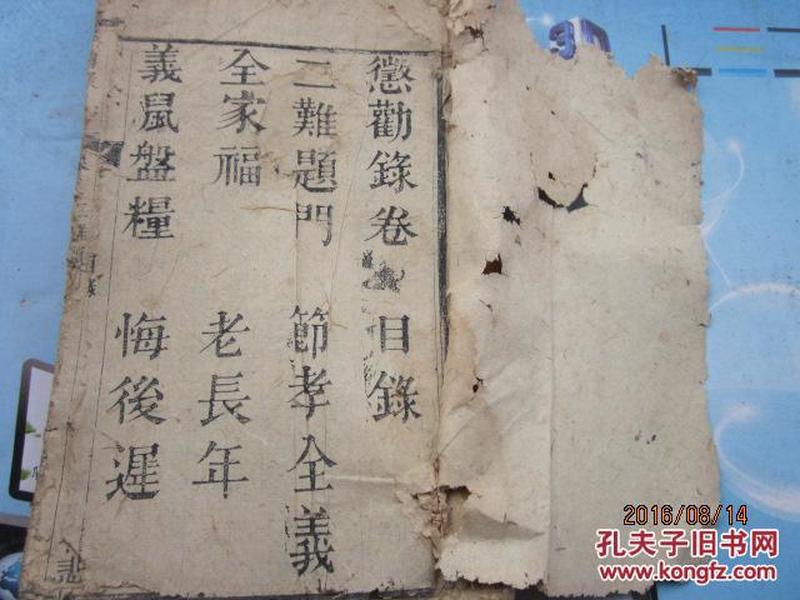 懲勸錄卷 目錄
二難題門 節孝全義
全家福 老長年
義鼠盤糧 悔後遲
2016/08/14
孔夫子旧书网
www.kongfz.com